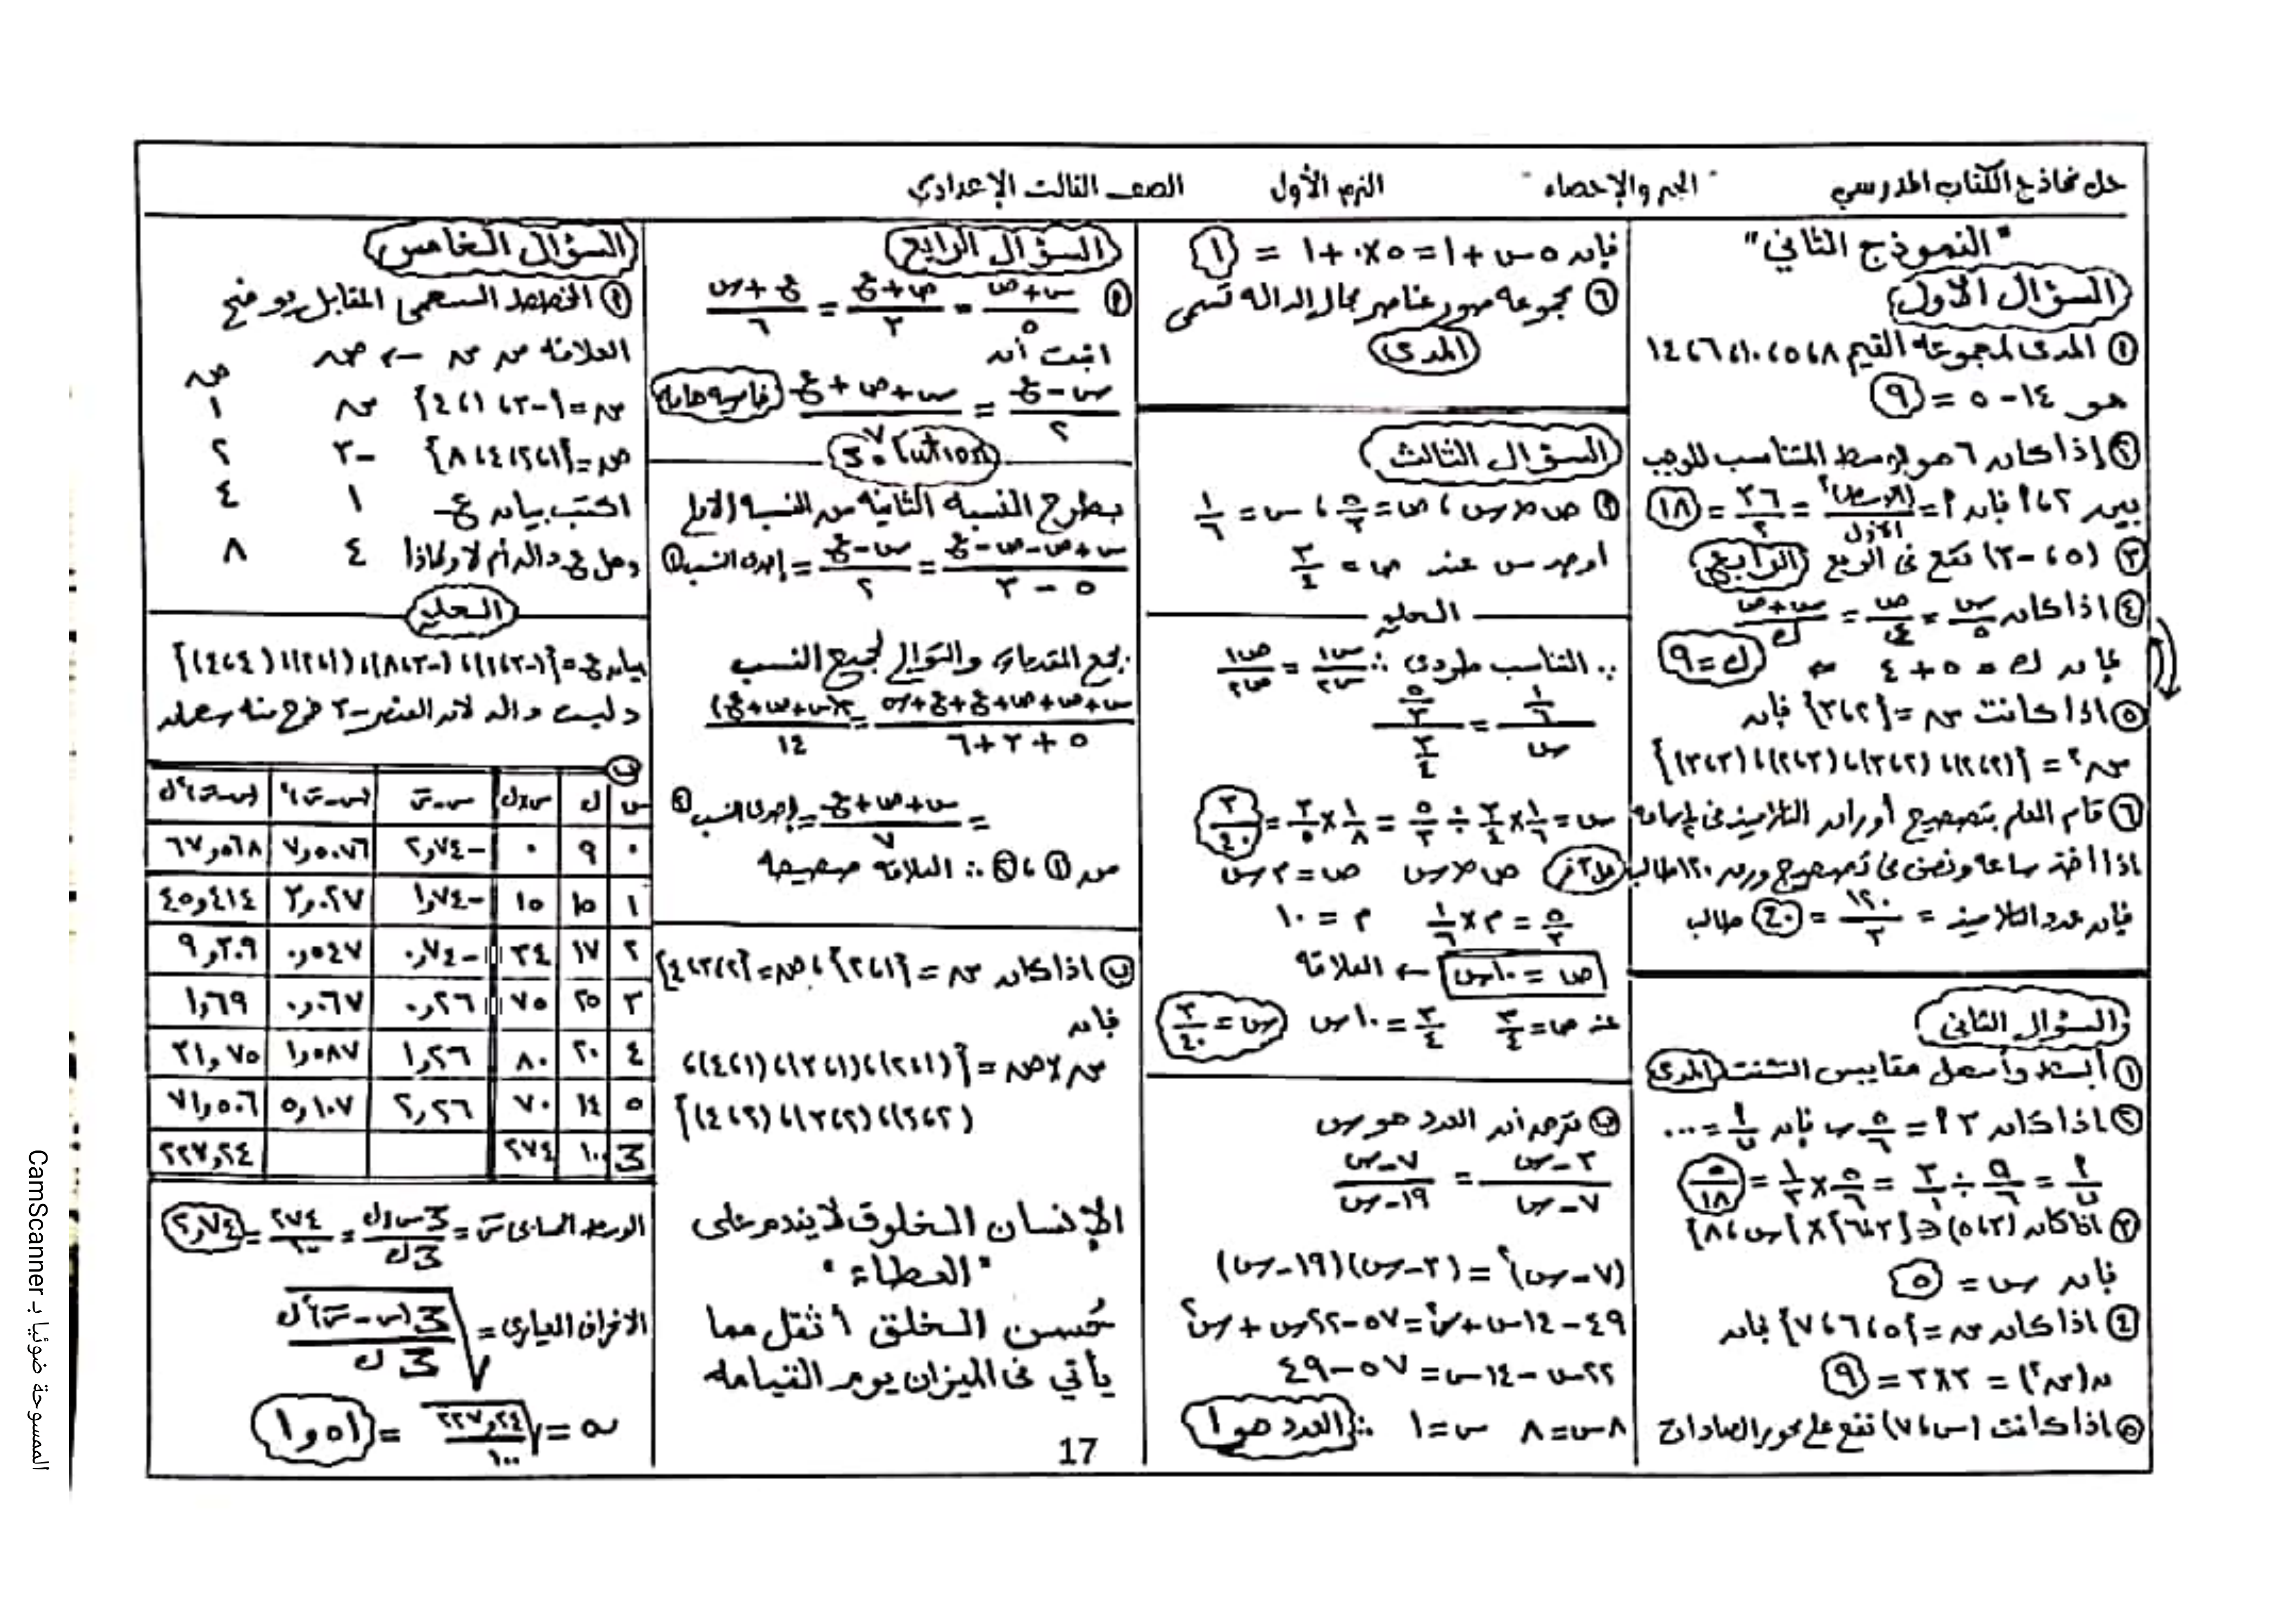 حل نماذج الكتاب المدرسي "الجبر والإحصاء" الترم الأول الصف الثالث الإعدادي
"النموذج الثاني"
السؤال الأول
١ المدى لمجموعة القيم ٨، ٥، ١٠، ٦، ١٤
هو ١٤ - ٥ = ٩
٢ إذا كان ٦ هو الوسط المتناسب الموجب
بين ٢، أ فإن أ = (الوسط)²/الأول = ٣٦/٢ = ١٨
٣ (٥، -٣) تقع فى الربع الرابع
٤ اذا كان س/٥ = ص/٤ = (س+ص)/ك
فإن ك = ٥ + ٤ ⇐ ك = ٩
٥ اذا كانت س = {٢، ٣} فإن
س² = {(٢،٢)، (٢،٣)، (٣،٢)، (٣،٣)}
٦ قام المعلم بتصحيح أوراق التلاميذ فى
اذا أخذ ساعة ونصف فى تصحيح ورق ١٢٠ طالب
فإن عدد التلاميذ = ١٢٠/٣ = ٤٠ طالب
السؤال الثانى
١ أبسط وأسهل مقاييس التشتت المدى
٢ اذا كان ٣أ = ٥/٦ ب فإن أ/ب = ...
أ/ب = ٥/٦ ÷ ٣/١ = ٥/٦ × ١/٣ = ٥/١٨
٣ اذا كان (٣، ٥) ∈ {٣، ٦} × {س، ٨}
فإن س = ٥
٤ اذا كان س = {٥، ٦، ٧} فإن
ن(س²) = ٣×٣ = ٩
٥ اذا كانت (س، ٧) تقع على محور الصادات
فإن ٥س + ١ = ٥×٠ + ١ = ١
٦ مجموعة صور عناصر مجال الدالة تسمى
المدى
السؤال الثالث
أ ص ∝ س، ص = ٥/٣، س = ١/٦
أوجد س عند ص = ٣/٤
الحل
∵ التناسب طردى ∴ س١/س٢ = ص١/ص٢
(١/٦)/س = (٥/٣)/(٣/٤)
س = ١/٦ × ٣/٤ ÷ ٥/٣ = ١/٨ × ٣/٥ = ٣/٤٠
حل آخر ص ∝ س ص = م س
٥/٣ = م × ١/٦ م = ١٠
ص = ١٠س ← العلاقة
عند ص = ٣/٤ ٣/٤ = ١٠س س = ٣/٤٠
ب نفرض أن العدد هو س
(٣-س)/(٧-س) = (٧-س)/(١٩-س)
(٧-س)² = (٣-س)(١٩-س)
٤٩ - ١٤س + س² = ٥٧ - ٢٢س + س²
٢٢س - ١٤س = ٥٧ - ٤٩
٨س = ٨ س = ١ ∴ العدد هو ١
السؤال الرابع
أ (س+ص)/٥ = (ص+ع)/٣ = (ع+س)/٦
اثبت أن
(س-ع)/٢ = (س+ص+ع)/
Solution
بطرح النسبة الثانية من النسبة الأولى
(س+ص-ص-ع)/(٥-٣) = (س-ع)/٢ = إحدى النسب ١
بجمع المقدمات والتوالى لجميع النسب
(س+ص+ص+ع+ع+س)/(٥+٣+٦) = ٢(س+ص+ع)/١٤
= (س+ص+ع)/٧ = إحدى النسب ٢
من ١، ٢ ∴ العلاقة صحيحة
ب اذا كان س = {١، ٢}، ص = {٢، ٣، ٤}
فإن
س × ص = {(١،٢)، (١،٣)، (١،٤)،
(٢،٢)، (٢،٣)، (٢،٤)}
الإنسان الخلوق لا يندم على
"العطاء"
حُسن الخلق أثقل مما
يأتي فى الميزان يوم القيامه
17
السؤال الخامس
أ المخطط السهمى المقابل يوضح
العلاقة من س ← ص
ص
س = {-٣، ١، ٤} س ١
ص = {١، ٢، ٤، ٨} -٣ ٢
اكتب بيان ع ١ ٤
وهل ع دالة أم لا ولماذا ٤ ٨
الحل
بيان ع = {(-٣،١)، (-٣،٨)، (١،٢)، (٤،٤)}
وليست دالة لأن العنصر -٣ خرج منه سهمان
ب
س ك س×ك س-س̄ (س-س̄)² (س-س̄)²ك
٠ ٩ ٠ -٢,٧٤ ٧,٥٠٧٦ ٦٧,٥٦٨
١ ١٥ ١٥ -١,٧٤ ٣,٠٢٧ ٤٥,٤١٤
٢ ١٧ ٣٤ -٠,٧٤ ٠,٥٤٧ ٩,٣٠٩
٣ ٢٥ ٧٥ ٠,٢٦ ٠,٠٦٧ ١,٦٩
٤ ٢٠ ٨٠ ١,٢٦ ١,٥٨٧ ٣١,٧٥
٥ ١٤ ٧٠ ٢,٢٦ ٥,١٠٧ ٧١,٥٠٦
Σ ١٠٠ ٢٧٤ ٢٢٧,٢٤
الوسط الحسابى س̄ = Σ س×ك/Σ ك = ٢٧٤/١٠٠ = ٢,٧٤
الانحراف المعيارى = √(Σ(س-س̄)²ك/Σ ك)
σ = √(٢٢٧,٢٤/١٠٠) = ١,٥١
الممسوحة ضوئيا بـ CamScanner